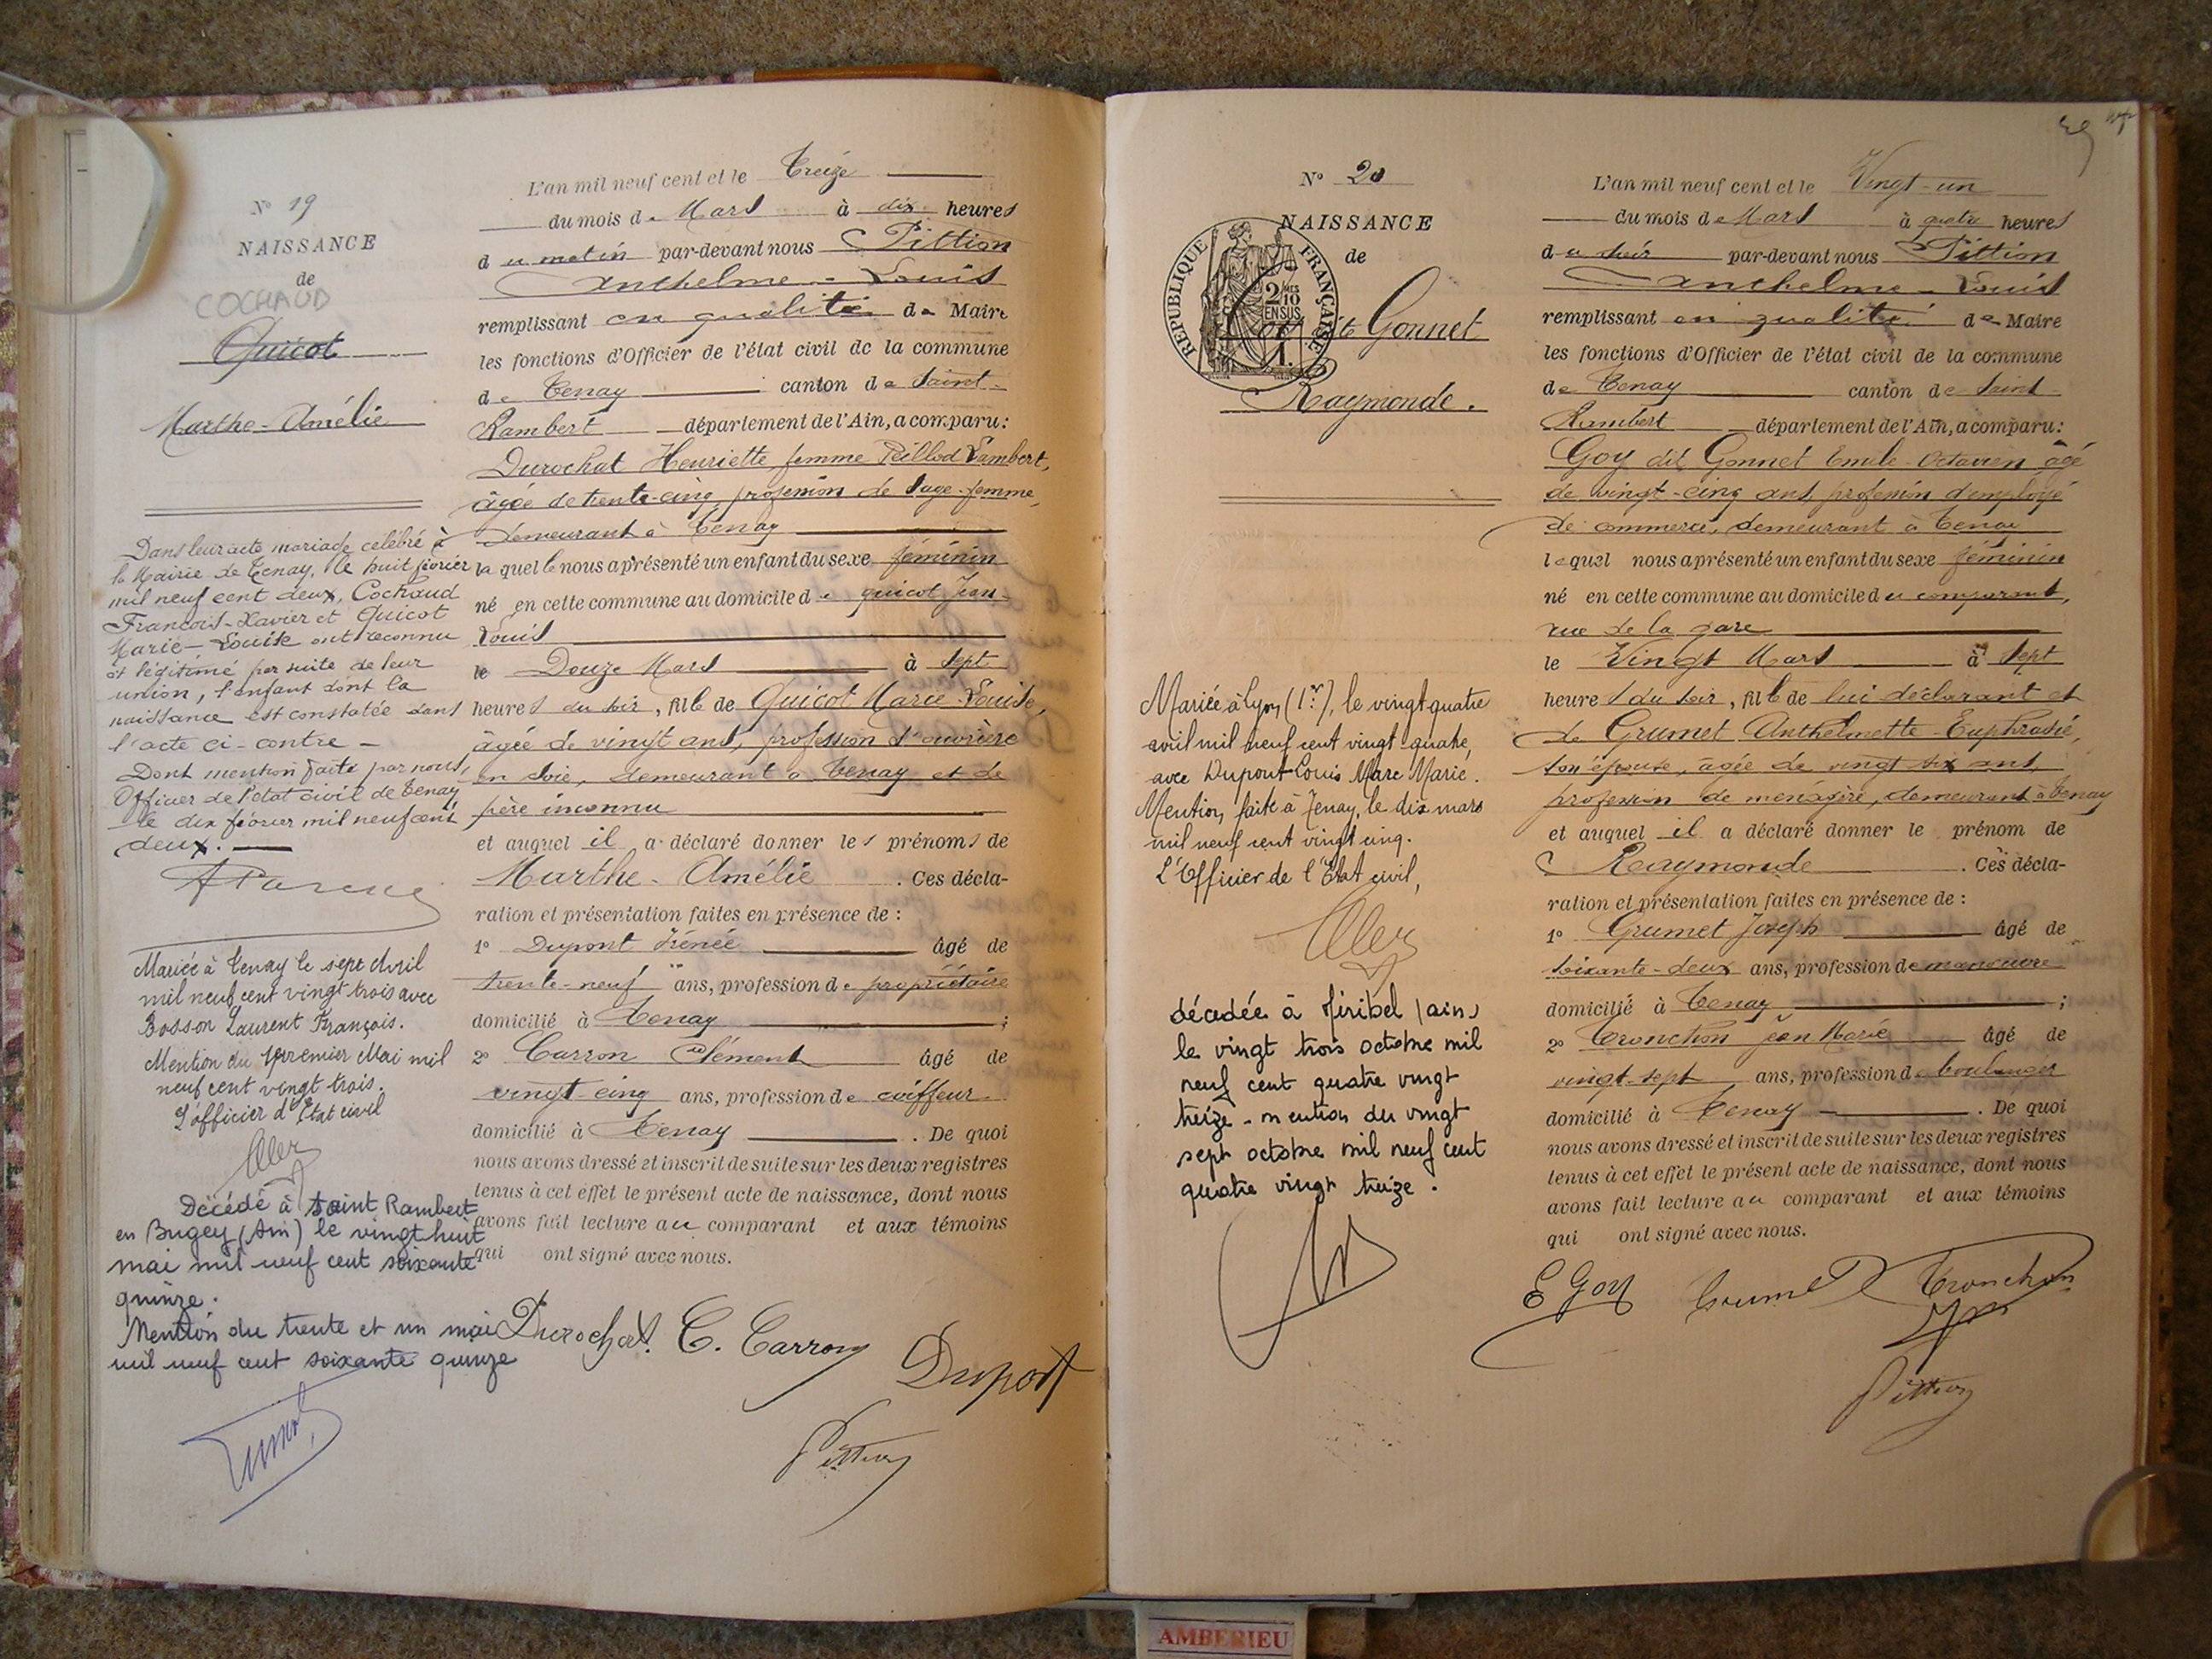 N° 19
NAISSANCE
de
COCHAUD
Quicot
Marthe-Amélie
Dans leur acte mariade célébré à
la Mairie de Tenay, le huit février
mil neuf cent deux, Cochaud
François-Xavier et Quicot
Marie-Louise ont reconnu
et légitimé par suite de leur
union, l'enfant dont la
naissance est constatée dans
l'acte ci-contre -
Dont mention faite par nous,
Officier de l'état civil de Tenay
le dix février mil neuf cent
deux.
Mariée à Tenay le sept Avril
mil neuf cent vingt trois avec
Bosson Laurent François.
Mention du premier Mai mil
neuf cent vingt trois.
L'officier d'Etat civil
Décédé à Saint Rambert
en Bugey (Ain) le vingt huit
mai mil neuf cent soixante
quinze.
Mention du trente et un mai
mil neuf cent soixante quinze
L'an mil neuf cent et le Treize
du mois de Mars à dix heures
du matin par-devant nous Pittion
Anthelme-Louis
remplissant en qualité de Maire
les fonctions d'Officier de l'état civil de la commune
de Tenay canton de Saint-
Rambert département de l'Ain, a comparu:
Durochat Henriette femme Peillod Lambert,
âgée de trente-cinq, profession de sage-femme,
demeurant à Tenay
laquelle nous a présenté un enfant du sexe féminin
né en cette commune au domicile de quicot Jean-
Louis
le Douze Mars à sept
heures du soir, fille de Quicot Marie-Louise,
âgée de vingt ans, profession d'ouvrière
en soie, demeurant à Tenay et de
père inconnu
et auquel il a déclaré donner les prénoms de
Marthe-Amélie. Ces décla-
ration et présentation faites en présence de:
1° Dupont Irénée âgé de
trente-neuf ans, profession de propriétaire
domicilié à Tenay;
2° Carron Clément âgé de
vingt-cinq ans, profession de coiffeur
domicilié à Tenay. De quoi
nous avons dressé et inscrit de suite sur les deux registres
tenus à cet effet le présent acte de naissance, dont nous
avons fait lecture au comparant et aux témoins
qui ont signé avec nous.
Durochat C. Carron Dupont
Pittion
N° 20
NAISSANCE
de
REPUBLIQUE FRANÇAISE
2/10 EN SUS
dit Gonnet
Raymonde.
Mariée à Lyon (1er), le vingt quatre
avril mil neuf cent vingt-quatre,
avec Dupont Louis Marc Marie.
Mention faite à Tenay, le dix mars
mil neuf cent vingt cinq.
L'Officier de l'Etat civil,
décédée à Miribel (ain)
le vingt trois octobre mil
neuf cent quatre vingt
treize - mention du vingt
sept octobre mil neuf cent
quatre vingt treize.
L'an mil neuf cent et le Vingt-un
du mois de Mars à quatre heures
du soir par-devant nous Pittion
Anthelme-Louis
remplissant en qualité de Maire
les fonctions d'Officier de l'état civil de la commune
de Tenay canton de Saint-
Rambert département de l'Ain, a comparu:
Goy dit Gonnet Emile-Octavien âgé
de vingt-cinq ans, profession d'employé
de commerce, demeurant à Tenay
lequel nous a présenté un enfant du sexe féminin
né en cette commune au domicile du comparant,
rue de la gare
le Vingt Mars à sept
heures du soir, fille de lui déclarant et
de Grumet Anthelmette-Euphrasie,
son épouse, âgée de vingt six ans,
profession de ménagère, demeurant à Tenay
et auquel il a déclaré donner le prénom de
Raymonde. Ces décla-
ration et présentation faites en présence de:
1° Grumet Joseph âgé de
soixante-deux ans, profession de manœuvre
domicilié à Tenay;
2° Tronchon jean Marie âgé de
vingt-sept ans, profession de boulanger
domicilié à Tenay. De quoi
nous avons dressé et inscrit de suite sur les deux registres
tenus à cet effet le présent acte de naissance, dont nous
avons fait lecture au comparant et aux témoins
qui ont signé avec nous.
E Goy Grumet Tronchon
Pittion
AMBERIEU